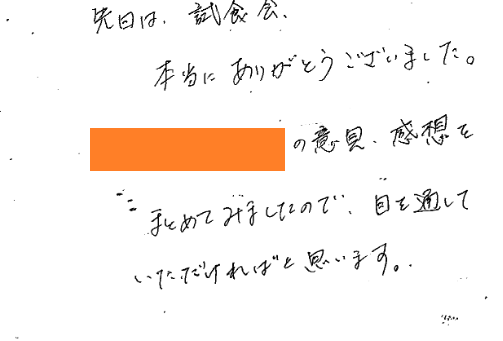 先日は、試食会、
本当にありがとうございました。
の意見、感想を
まとめてみましたので、目を通して
いただければと思います。